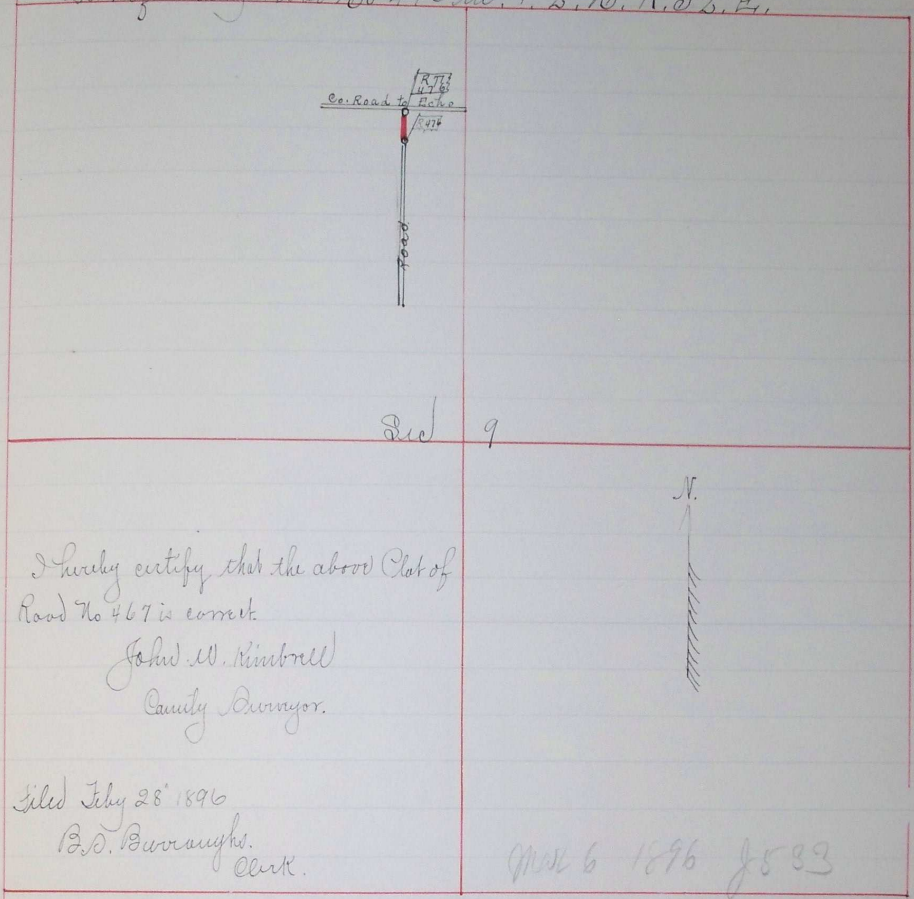 T. 2. N. R. 32. E.
Co. Road to Echo
Road
Sec 9
N.
I hereby certify that the above Plat of
Road No 467 is correct.
John W. Kimbrell
County Surveyor.
Filed Feby 28" 1896
B.S. Burroughs.
Clerk.
Mar 6 1896 J 533